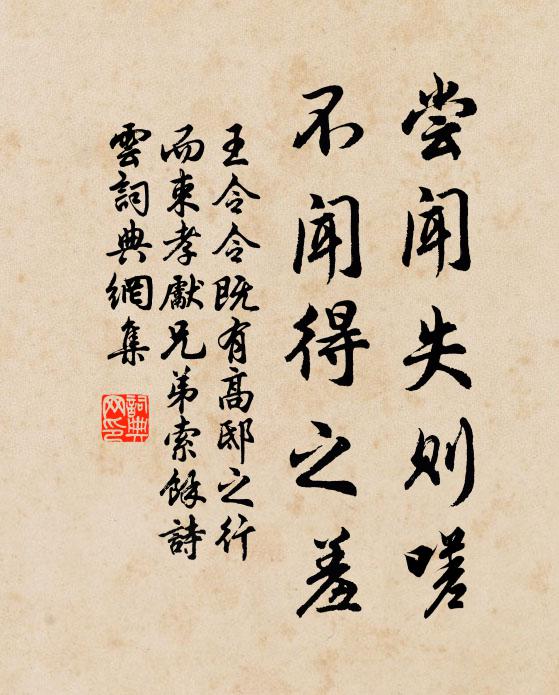 尝闻失则嗟
不闻得之羞
王令令既有高邸之行
而東孝獻兄弟索餘詩
雲詞典網集
詞典
网印